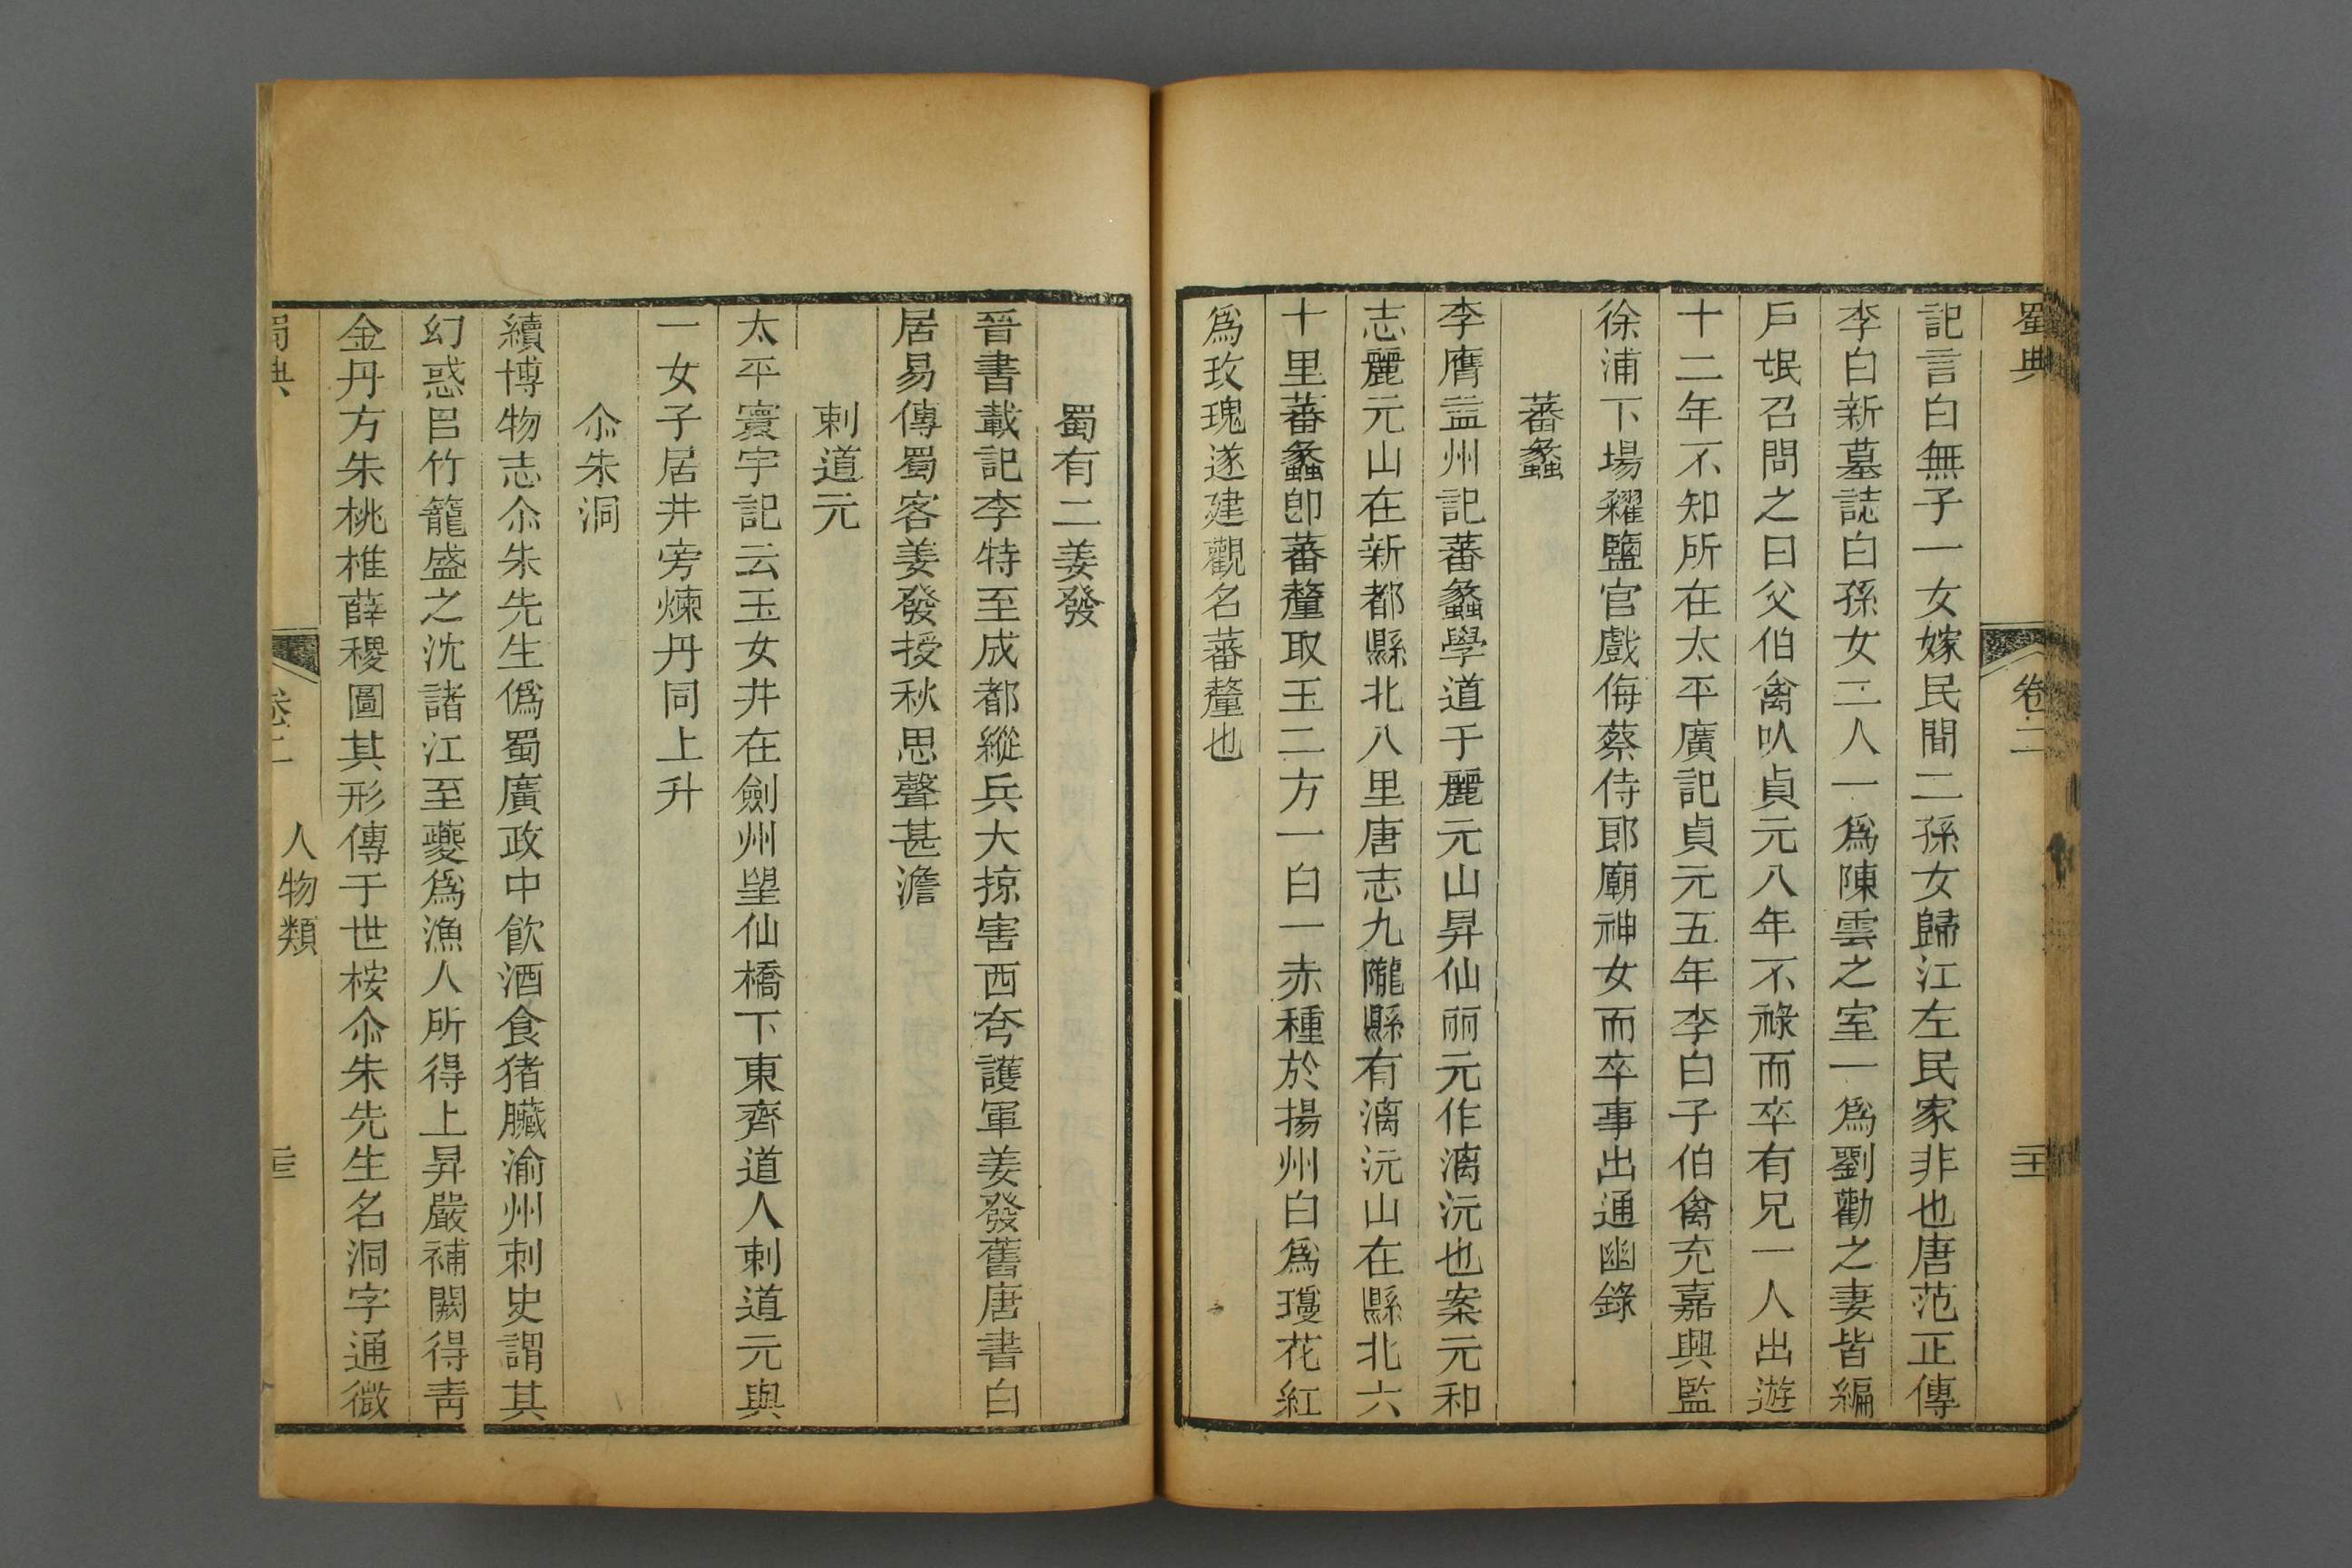 蜀典 卷二
記言白無子一女嫁民間二孫女歸江左民家非也唐范正傳
李白新墓誌白孫女二人一爲陳雲之室一爲劉勸之妻皆編
戶氓召問之曰父伯禽以貞元八年不祿而卒有兄一人出遊
十二年不知所在太平廣記貞元五年李白子伯禽充嘉興監
徐浦下場糴鹽官戲侮蔡侍郎廟神女而卒事出通幽錄
蕃蠡
李膺益州記蕃蠡學道于麗元山昇仙丽元作漓沅也案元和
志麗元山在新都縣北八里唐志九隴縣有漓沅山在縣北六
十里蕃蠡卽蕃釐取玉二方一白一赤種於揚州白爲瓊花紅
爲玫瑰遂建觀名蕃釐也
蜀有二姜發
晉書載記李特至成都縱兵大掠害西夸護軍姜發舊唐書白
居易傳蜀客姜發授秋思聲甚澹
剌道元
太平寰宇記云玉女井在劍州望仙橋下東齊道人剌道元與
一女子居井旁煉丹同上升
尒朱洞
續博物志尒朱先生僞蜀廣政中飮酒食猪臟渝州刺史謂其
幻惑㠯竹籠盛之沈諸江至夔爲漁人所得上昇嚴補闕得靑
金丹方朱桃椎薛稷圖其形傳于世桉尒朱先生名洞字通微
蜀典 卷二 人物類